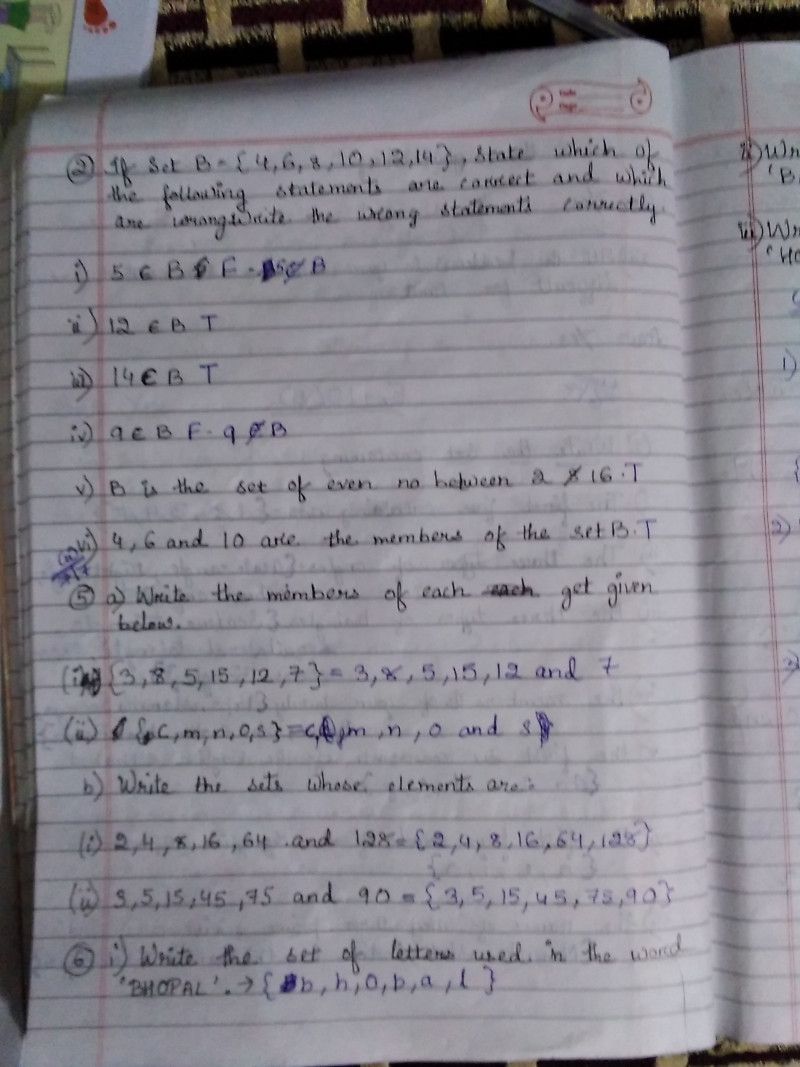 Date
Page
② If set B = {4, 6, 8, 10, 12, 14}, state which of
the following statements are correct and which
are wrong. Write the wrong statements correctly.
i) 5 ∈ B F - 5 ∉ B
ii) 12 ∈ B T
iii) 14 ∈ B T
iv) 9 ∈ B F - 9 ∉ B
v) B is the set of even no between 2 & 16. T
vi) 4, 6 and 10 are the members of the set B. T
⑤ a) Write the members of each each get given
below.
(i) {3, 8, 5, 15, 12, 7} = 3, 8, 5, 15, 12 and 7
(ii) {c, m, n, o, s} = c, m, n, o and s
b) Write the sets whose elements are:
(i) 2, 4, 8, 16, 64 and 128 = {2, 4, 8, 16, 64, 128}
(ii) 3, 5, 15, 45, 75 and 90 = {3, 5, 15, 45, 75, 90}
⑥ i) Write the set of letters used in the word
'BHOPAL'. → {b, h, o, p, a, l}
ii) Wr
'B
iii) Wr
'HO
1)
{
2)
3)